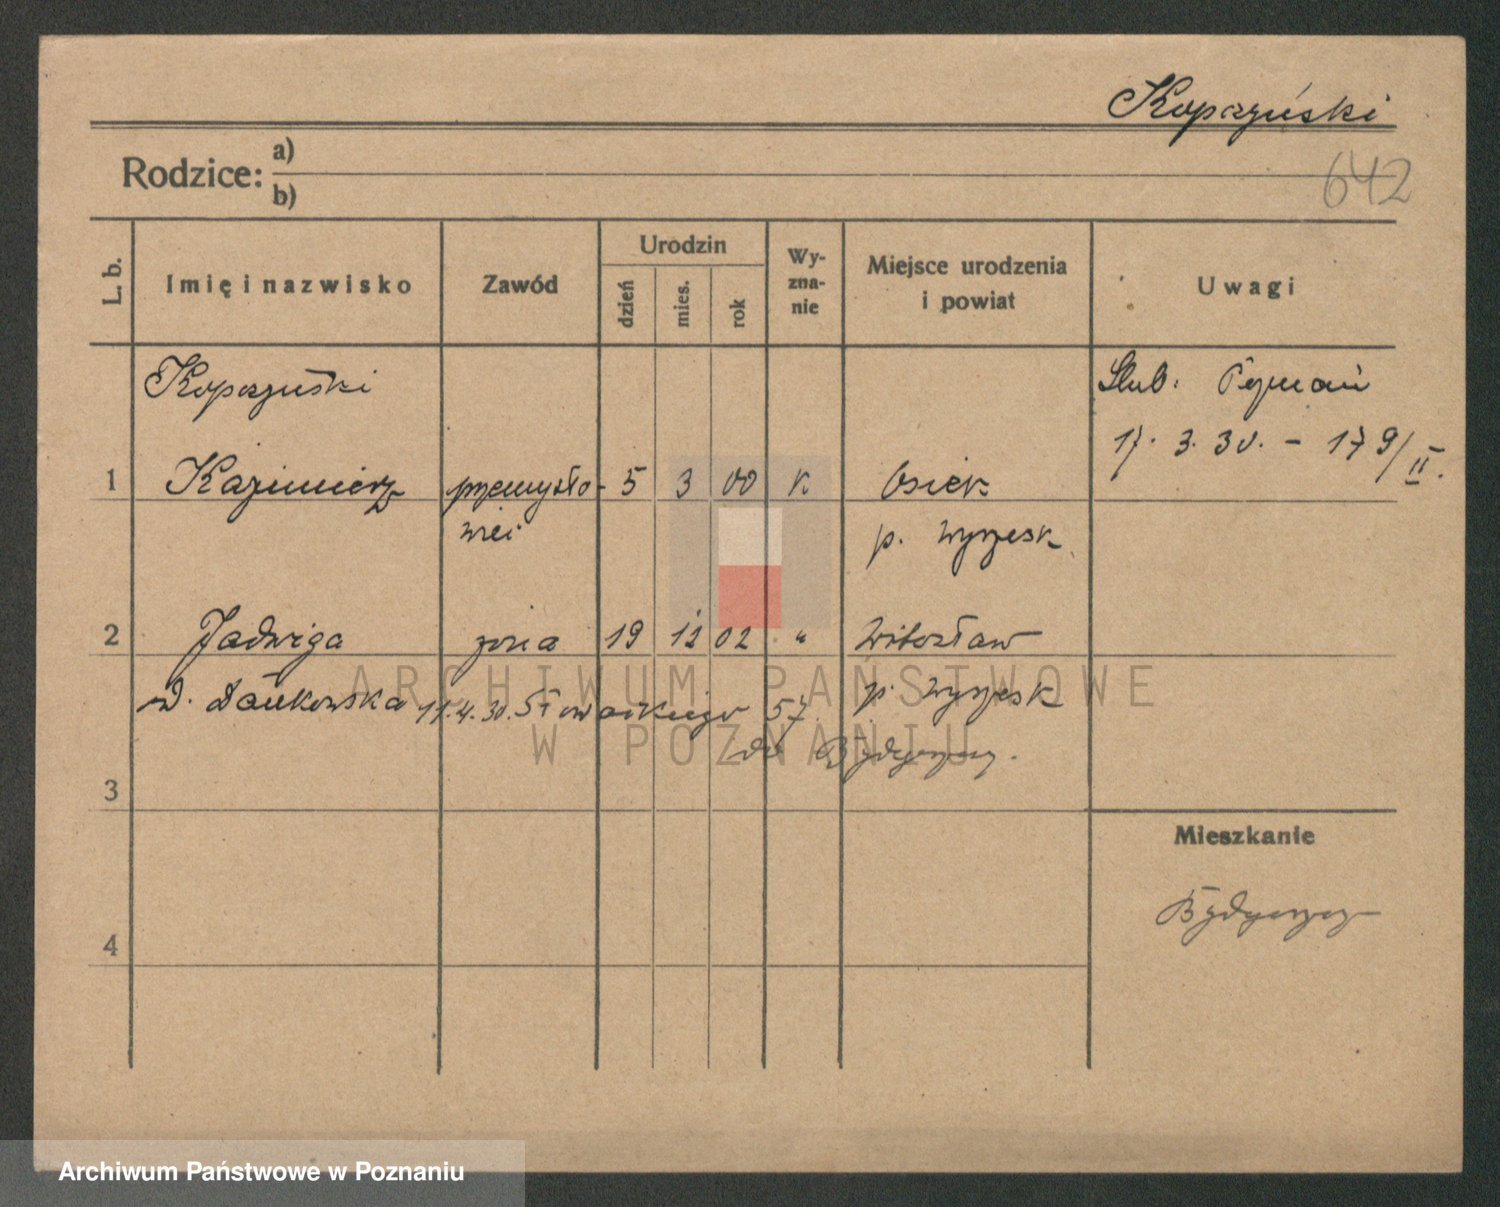 Kopczyński
Rodzice: a)
b)
642
L. b.
Imię i nazwisko
Zawód
Urodzin
dzień
mies.
rok
Wy-
zna-
nie
Miejsce urodzenia
i powiat
Uwagi
Kopczyński
Ślub. Poznań
17. 3. 30. - 179/II.
1 Kazimierz przemysło- 5 3 00 K Osiek
wiec p. Wyrzysk
2 Jadwiga żona 19 12 02 " Witosław
d. Dankowska 11.4.30. Słowackiego 57. p. Wyrzysk
do Bydgoszczy.
3
Mieszkanie
Bydgoszcz
4
ARCHIWUM PAŃSTWOWE
W POZNANIU
Archiwum Państwowe w Poznaniu